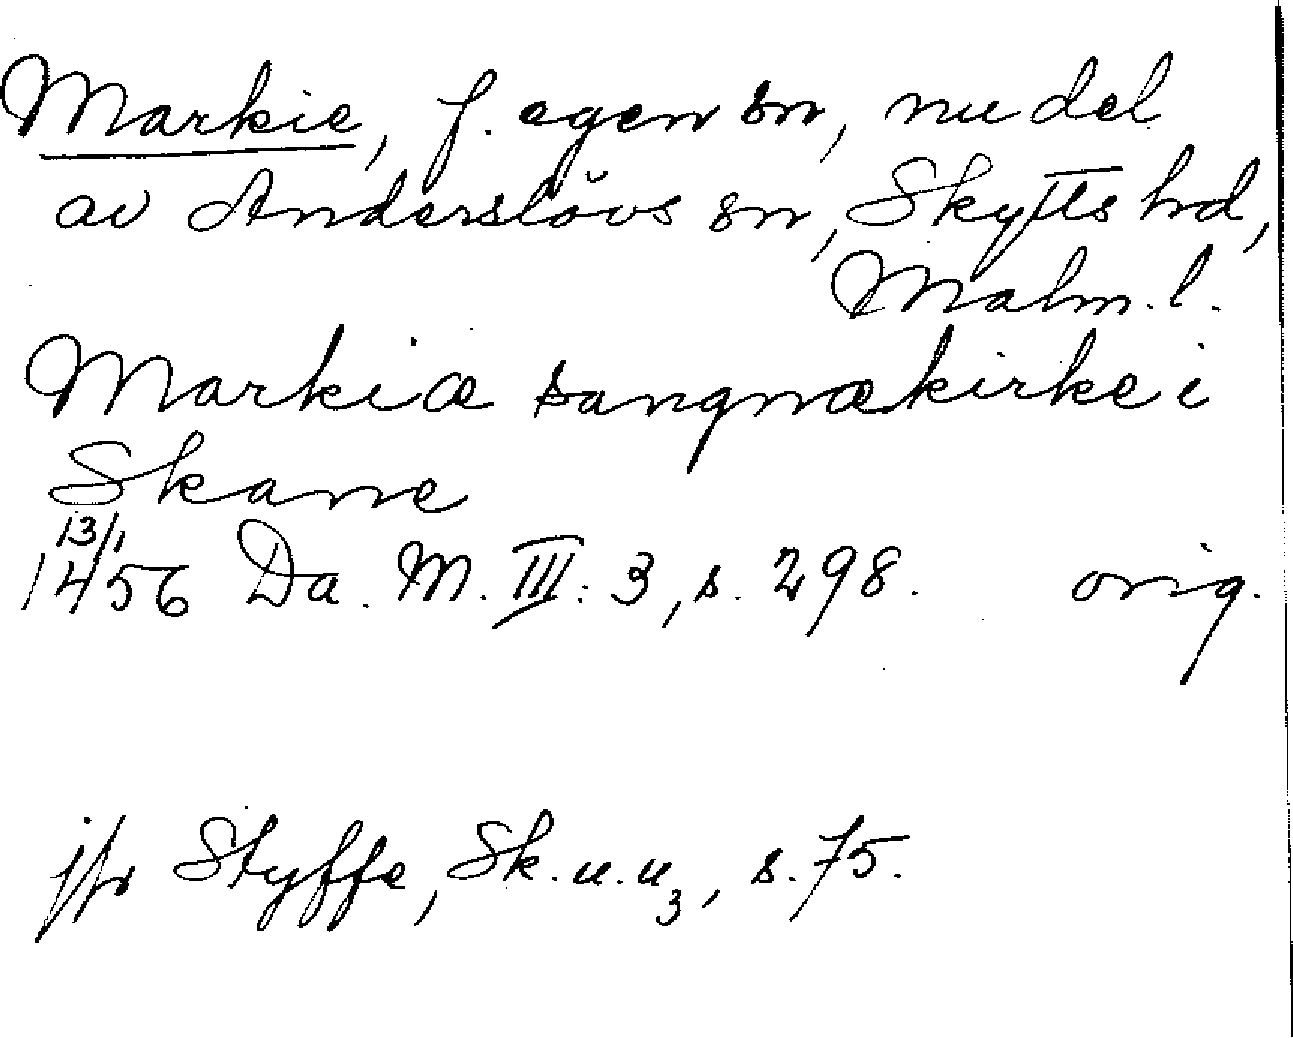 Markie, f. egen sn, nu del
av Anderslövs sn, Skytts hd,
Malm. l.
Markiæ sangnækirke i
Skane
13/1
1456 Da. M. III: 3, s. 298. orig.
jfr Styffe, Sk. u. u3, s. 75.